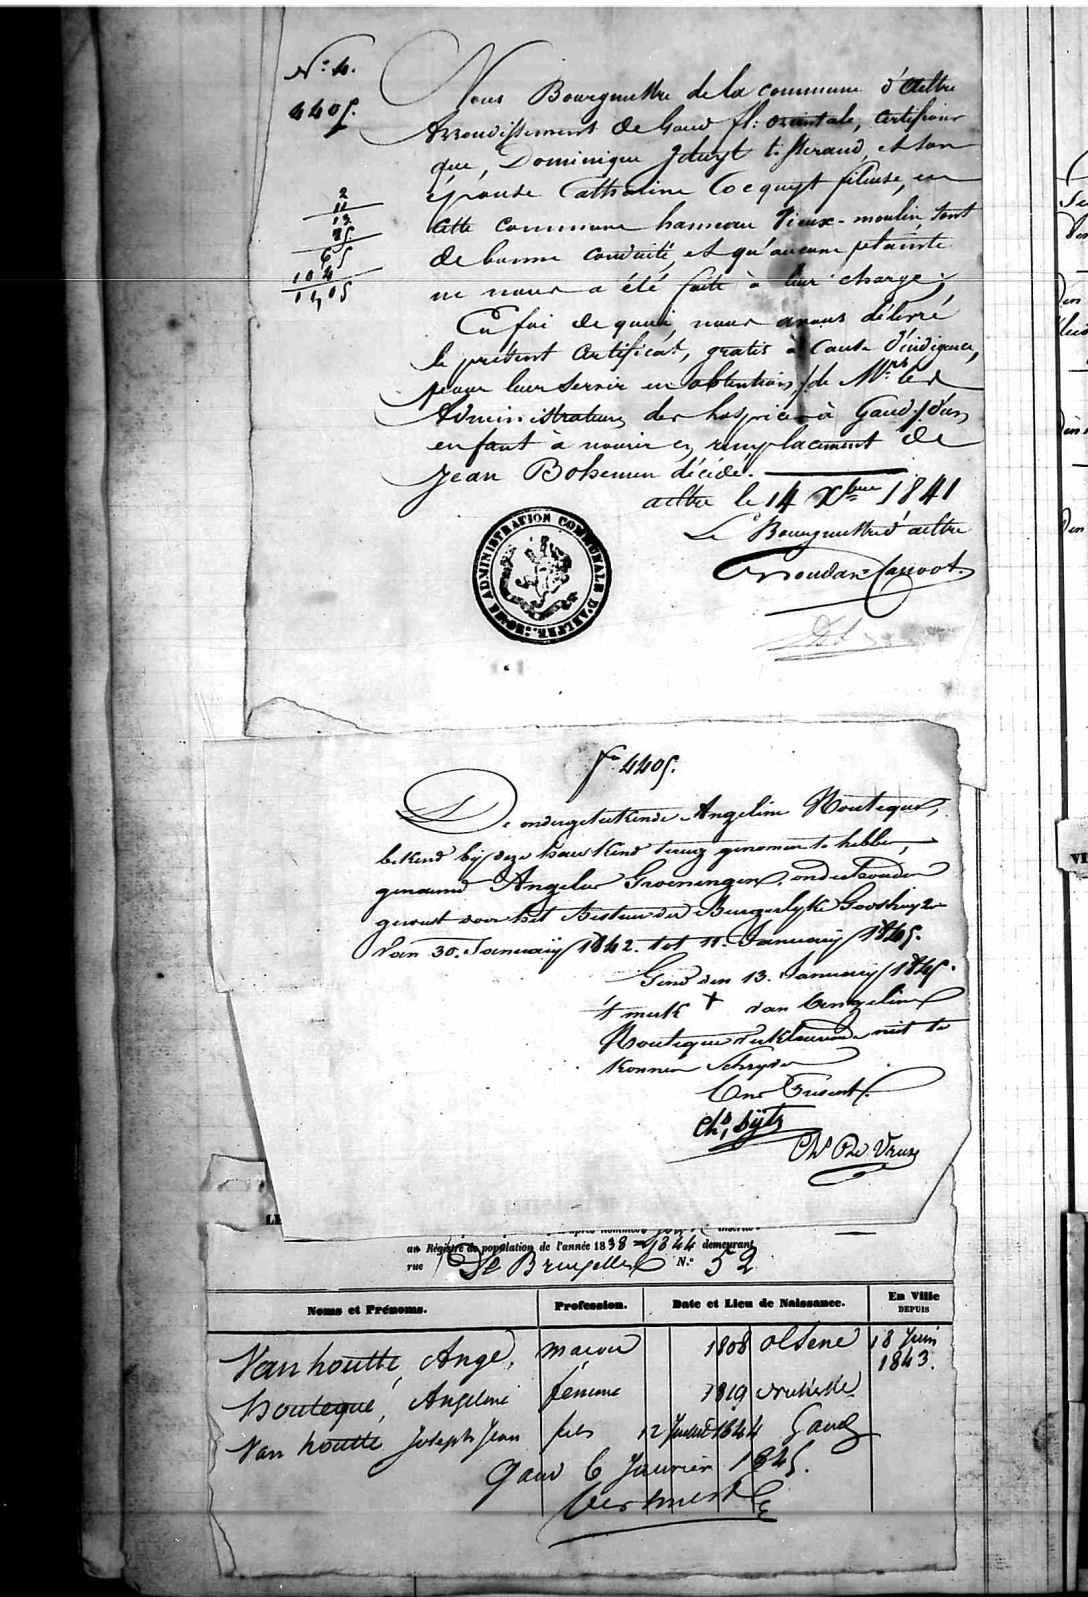 N.º 4.
4405.
2
11
13
85
65
104
1405
Nous Bourgmettre de la commune d'Aeltre
Arrondissement de Gand fl: orientale, certifions
que, Dominique t: et son
épouse Catharine Cocquyt fileuse, en
cette commune hameau Vieux-moulin sont
de bonne conduite, et qu'aucune plainte
ne nous a été faite à leur charge;
En foi de quoi, nous avons délivré
le présent certificat, gratis à cause d'indigence,
pour leur servir en obtention de M.rs les
Administrateurs des hospices à Gand, d'un
enfant à nourir en remplacement de
Jean Bohemen décédé.
aeltre le 14 Xbre 1841
Le Bourgmettre d'aeltre
ADMINISTRATION COMMUNALE D'AELTRE
fo 4405.
De ondergeteekende Angeline Houteque,
bekend bij deze haer kind terug genomen te hebben,
genaemd Angelus Groeningen, onderhouden
geweest door het Bestuer der Burgerlyke Godshuyzen
van 30. January 1842. tot 11. January 1845.
Gend den 13. January 1845.
't merk + van Angelina
Houteque verklaerende niet te
konnen schryven
Ons Present.
Chs De Vreese
LE
au Registre de population de l'année 1838 = 1844 demeurant
rue de Bruxelles N.º 52
Noms et Prénoms. Profession. Date et Lieu de Naissance. En Ville DEPUIS
Van houtte, Ange, macon 1808 Olsene 18 Juin 1843.
houteque, Angeline femme 1819
Van houtte Joseph Jean fils 12 1844 Gand
Gand 6 Janvier 1845.